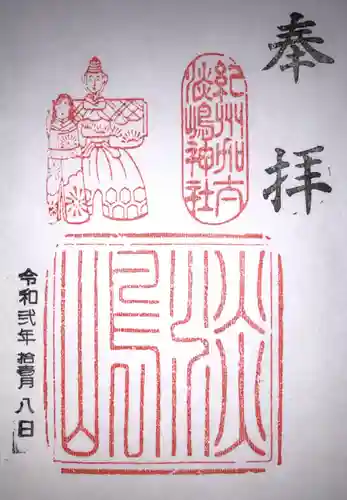 奉拝
紀州加太
淡嶋神社
淡嶋
令和弐年拾壱月八日